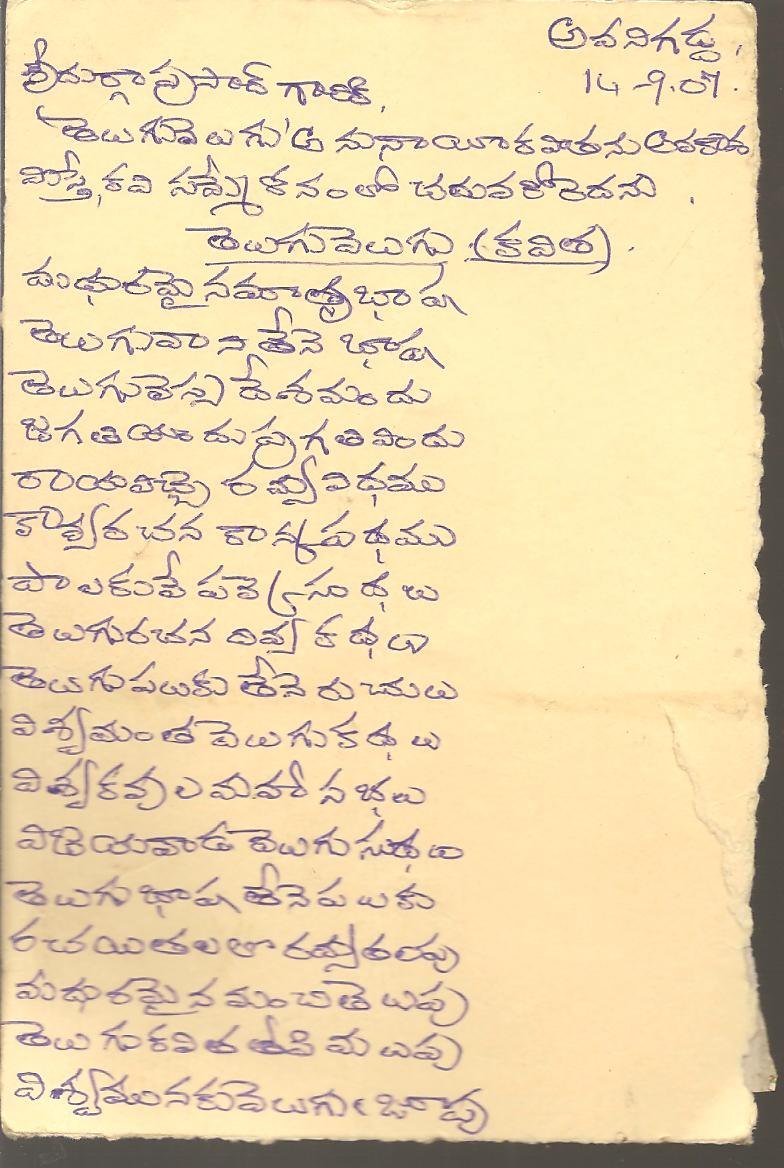 అవనిగడ్డ,
14-9-07.
శ్రీదుర్గాప్రసాద్ గారికి,
'తెలుగువెలుగు' అనునాయీకవితను అవకాశ
మిస్తే, కవి సమ్మేళనంలో చదువకోరెదను.
తెలుగువెలుగు (కవిత).
మధురమైన మాతృభాష
తెలుగువాని తేనె భాష
తెలుగులెస్స దేశమందు
జగతియందు ప్రగతిపిండు
రాయవిచ్చె కవ్వి విధము
కావ్యరచన కాన్క పథము
పాలకులే పల్కె సుధలు
తెలుగురచన దివ్య కథలు
తెలుగుపలుకు తేనె రుచులు
విశ్వమంత వెలుగు కథలు
విశ్వకవుల మహా సభలు
విజయవాడ తెలుగు సుధలు
తెలుగుభాష తేనెపలుకు
రచయితలలా కవ్వితలపు
మధురమైన మంచితెలుపు
తెలుగుకవిత తీపి మలుపు
విశ్వమునకువెలుగుఁజూపు